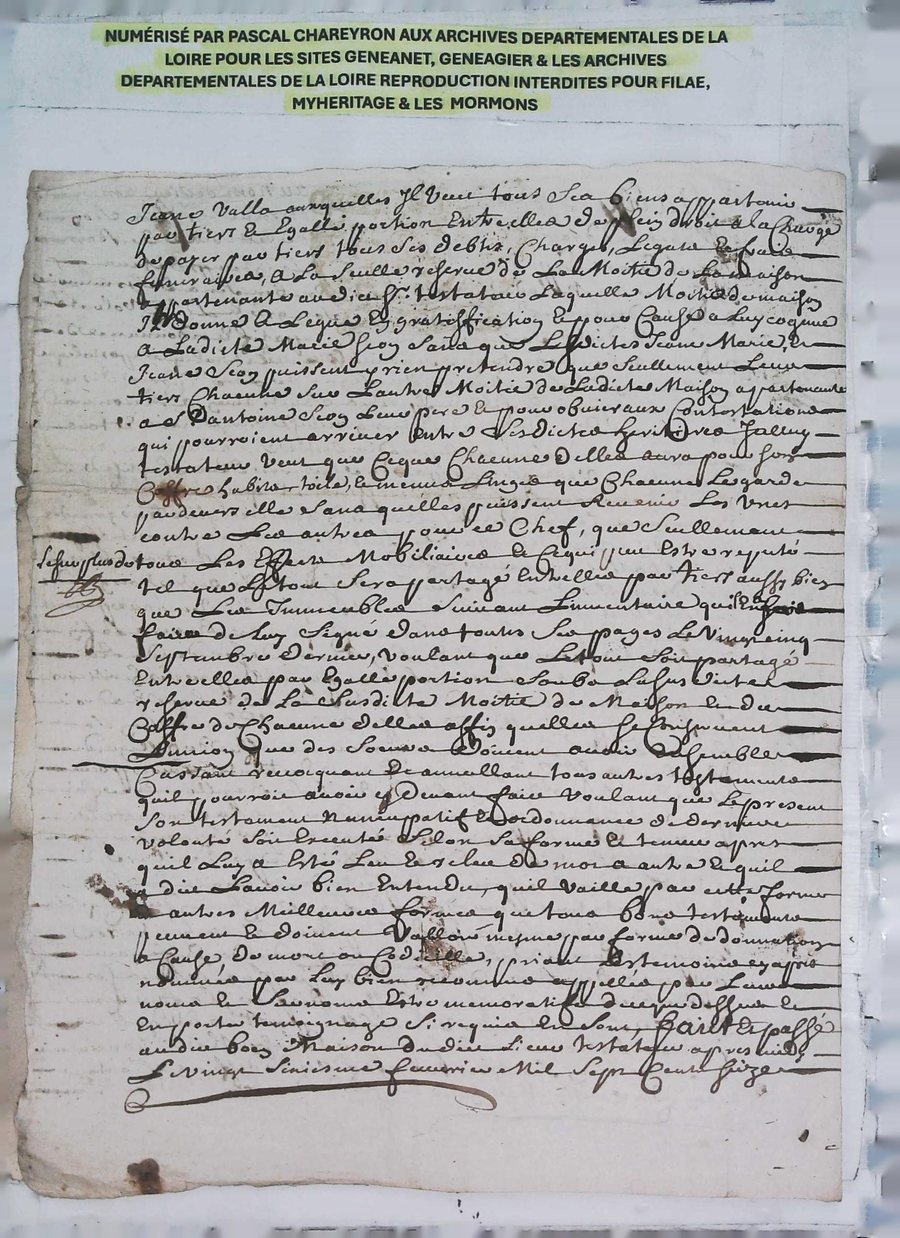 NUMÉRISÉ PAR PASCAL CHAREYRON AUX ARCHIVES DEPARTEMENTALES DE LA
LOIRE POUR LES SITES GENEANET, GENEAGIER & LES ARCHIVES
DEPARTEMENTALES DE LA LOIRE REPRODUCTION INTERDITES POUR FILAE,
MYHERITAGE & LES MORMONS
Jeane Valla auxquelles Il Veut tous Ses biens appartenir
par tiers et Egalle portion Entre elles de plein droit a la Charge
de payer par tiers tous Ses debtes, Charges, Legats et frais
funeraires, a La Seulle reserve de La Moitié de La maison
appartenante audict Sr. testateur Laquelle Moitié de maison
Il donne & Legue En gratiffication et pour Cause a Luy cognue
a Ladicte Marie Scon Sans que Lesdictes Jeane Marie, et
Jeane Scon puissent rien pretendre que Seullement Leur
tiers Chacune Sur Lautre Moitié de Ladicte Maison appartenante
a Sr. antoine Scon Leur pere et pour obvier aux Contestations
qui pourroient arriver Entre Sesdictes heritieres
testateur Veut que Ceque Chacune delles aura pour Son
Coffre habits, toile, et menus Linges que Chacune Le garde
pardevers elle Sans quelles puissent Revenir Les Unes
contre Les autres pour ce Chef, que Seullement
Le surplus de tous Les Effects Mobiliaires et Cequi peut Estre reputé
tel que Le tout Sera partagé Entrelles par tiers aussy bien
que Les Immeubles Suivant Linventaire quil En a fait
faire de Luy Signé dans toutes Ses pages Le Vingt cinq
Septembre dernier, voulant que Le tout Soit partagé
Entrelles par Egalle portion Soubs La Susdicte
reserve de La Susdicte Moitié de Maison et du
Coffre de Chacune delles affin quelles Se Conservent
Lunion que des Soeurs doivent avoir Ensemble
Cassant revocquant et annullant tous autres testaments
quil pourroit avoir cydevant fait Voulant que Le present
Son testament Nuncupatif et ordonnance de derniere
volonté Soit Executé Selon Sa forme et teneur apres
quil Luy a Esté Leu et releu de mot a autre et quil
a dict Lavoir bien Entendu, quil vaille par cette forme
& autres Meilleures formes que tous bons testaments
peuvent et doivent Valloir mesme par forme de donnation
a Cause de mort ou Codicille, priant Les temoins cy apres
nommés par Luy bien reconnus appellés par Leurs
noms et Surnoms Estre memoratifs de ceque dessus et
En porter temoignage Si requis En Sont, fait et passé
au dit bourg Maison du dict Sieur testateur apres midy
Le Vingt Sixiesme fevrier Mil Sept Cent Seize